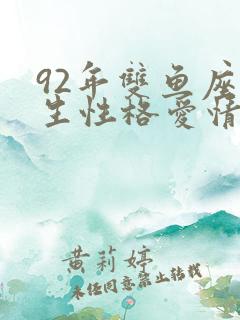 92年雙鱼座
生性格愛情
黄莉婷
未经同意禁止转载